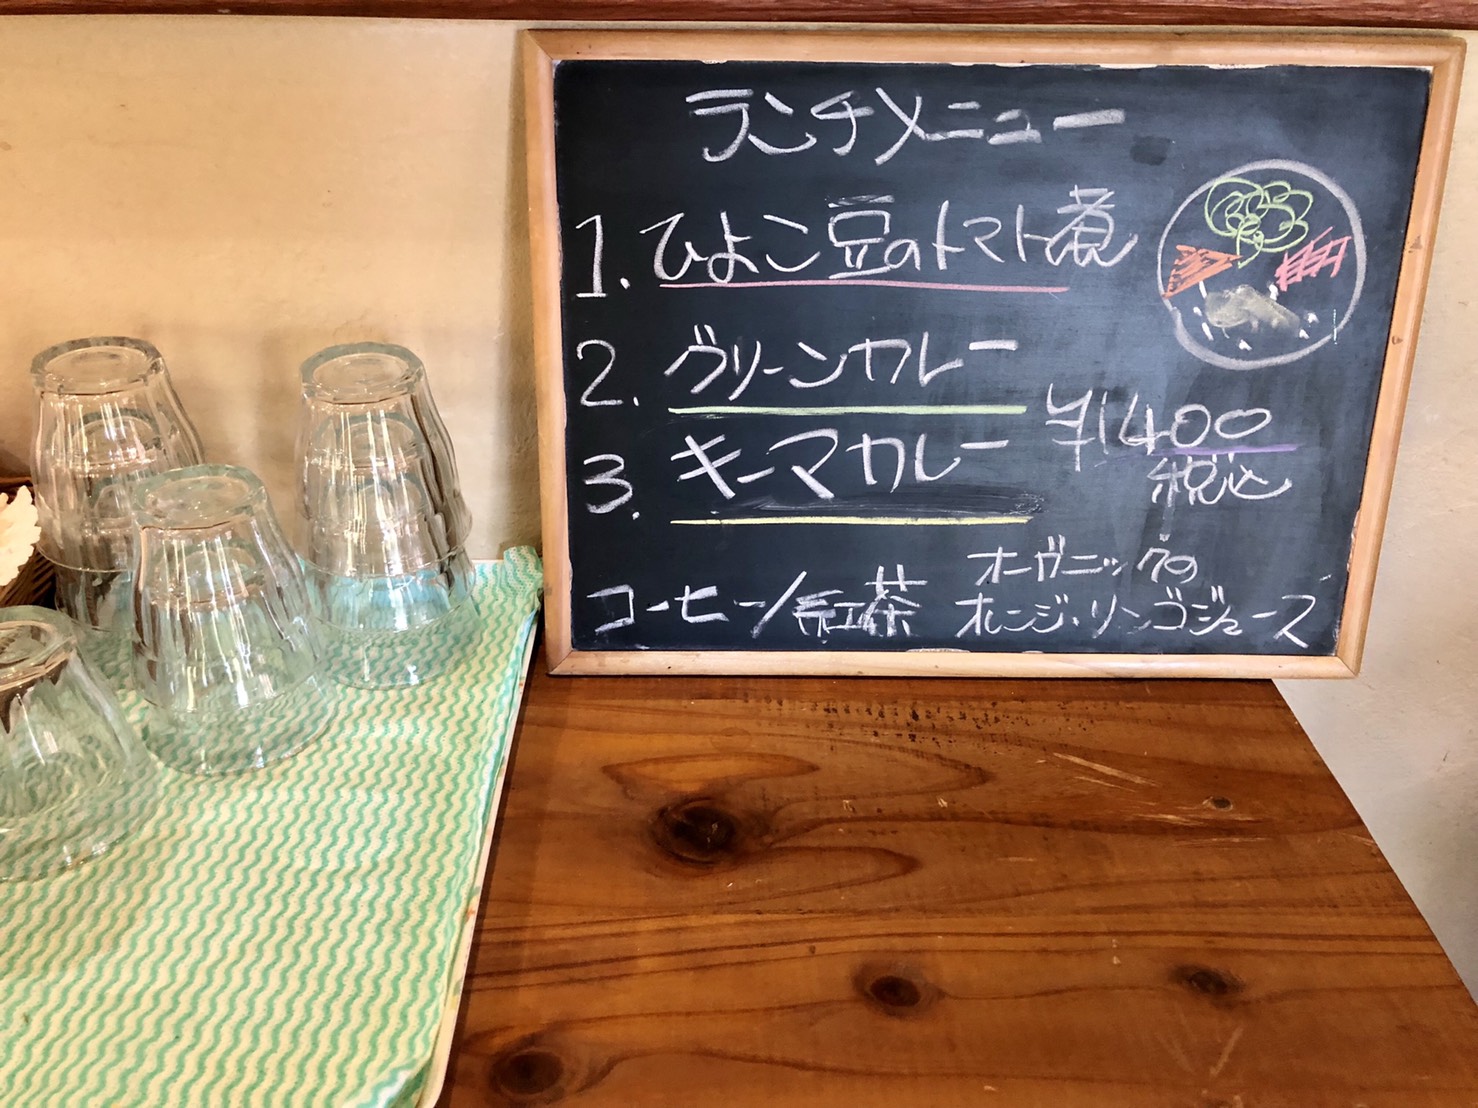 ランチメニュー
1. ひよこ豆のトマト煮
2. グリーンカレー
3. キーマカレー
¥1400
税込
コーヒー/紅茶
オーガニックの
オレンジ・リンゴジュース